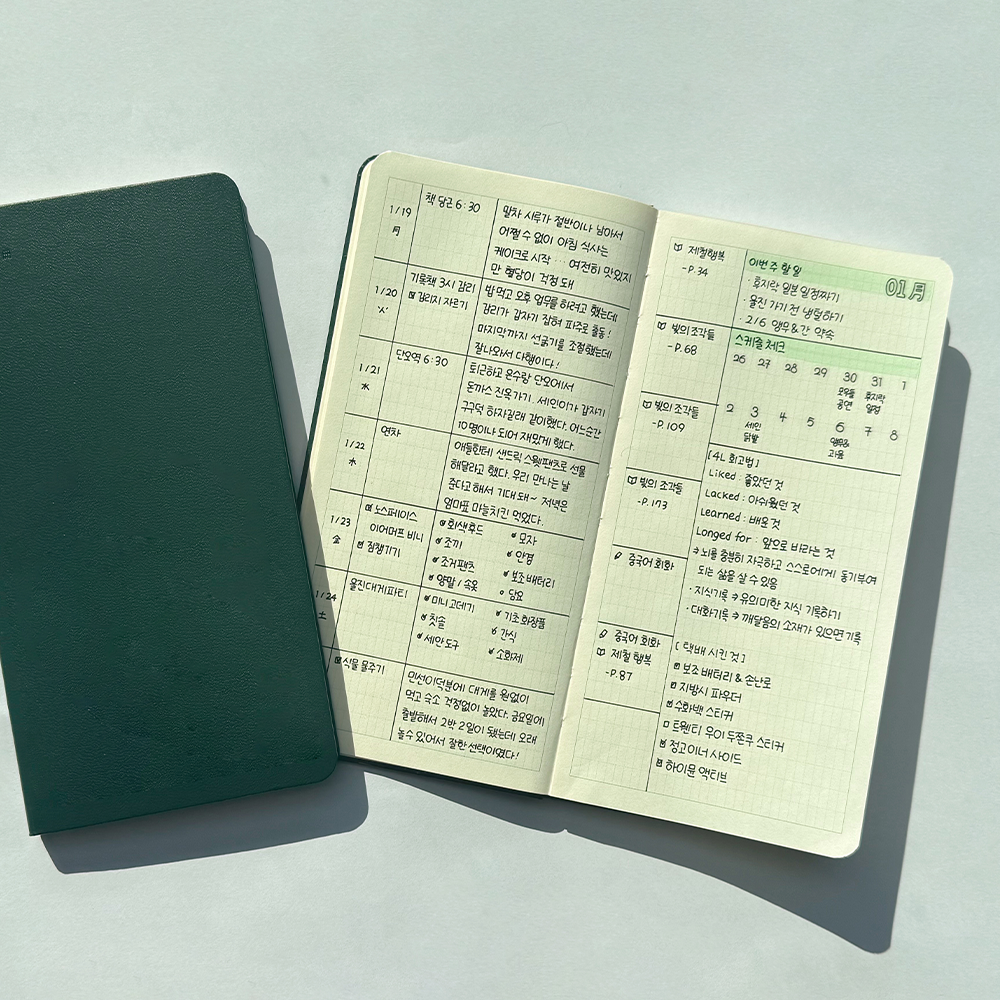 1/19
月
책 당근 6:30
말차 시루가 절반이나 남아서
어쩔 수 없이 아침 식사는
케이크로 시작… 여전히 맛있지
만 혈당이 걱정 돼
1/20
火
기록책 3시 감리
감리지 자르기
밥 먹고 오후 업무를 하려고 했는데
감리가 갑자기 잡혀 파주로 출동!
마지막까지 선굵기를 조절했는데
잘나와서 다행이다!
1/21
水
단오역 6:30
퇴근하고 은수랑 단오에서
돈까스 진옥가기. 세인이가 갑자기
구구덕 하자길래 같이했다. 어느순간
10명이나 되어 재밌게 했다.
1/22
木
연차
애들한테 샌드릭 스웻팬츠로 선물
해달라고 했다. 우리 만나는 날
준다고 해서 기대 돼~ 저녁은
엄마표 마늘치킨 먹었다.
1/23
金
노스페이스
이어머프 비니
짐챙기기
회색후드
조끼
조거팬츠
양말 / 속옷
모자
안경
보조 배터리
담요
1/24
土
울진대게파티
미니고데기
칫솔
세안도구
기초 화장품
간식
소화제
식물 물주기
민선이덕분에 대게를 원없이
먹고 숙소 걱정없이 놀았다. 금요일에
출발해서 2박 2일이 됐는데 오래
놀 수 있어서 잘한 선택이였다!
제철행복
-P.34
빛의 조각들
-P.68
빛의 조각들
-P.109
빛의 조각들
-P.173
중국어 회화
중국어 회화
제철 행복
-P.87
01月
이번 주 할 일
· 후지락 일본 일정짜기
· 울진 가기 전 냉털하기
· 2/6 앵무&간 약속
스케줄 체크
26 27 28 29 30 31 1
공연
후지락
일정
2 3 4 5 6 7 8
세인
닭발
앵무&
[4L 회고법]
Liked : 좋았던 것
Lacked : 아쉬웠던 것
Learned : 배운 것
Longed for : 앞으로 바라는 것
⇒ 뇌를 충분히 자극하고 스스로에게 동기부여
되는 삶을 살 수 있음
· 지식기록 ⇒ 유의미한 지식 기록하기
· 대화기록 ⇒ 깨달음의 소재가 있으면 기록
[택배 시킨 것]
보조 배터리 & 손난로
지방시 파우더
수화백 스티커
트웬티 우이 두쫀쿠 스티커
정고이너 사이드
하이뮨 액티브